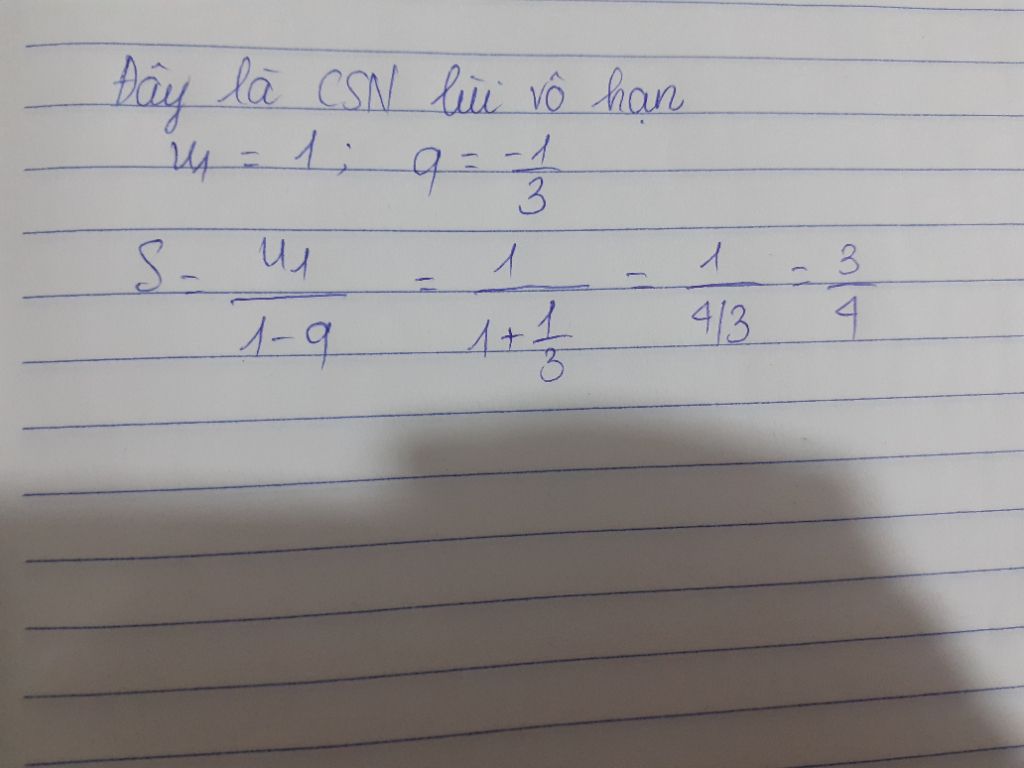 Đây là CSN lùi vô hạn
u1 = 1; q = -1/3
S = u1/(1-q) = 1/(1+1/3) = 1/(4/3) = 3/4